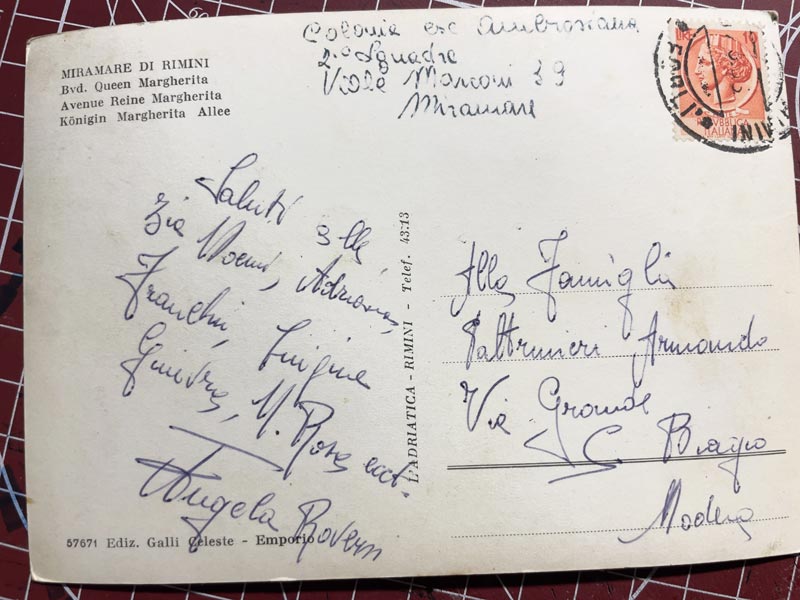 MIRAMARE DI RIMINI
Bvd. Queen Margherita
Avenue Reine Margherita
Königin Margherita Allee
Colonia exc Ambrosiana
2ª Squadra
Viale Marconi 39
Miramare
REPVBBLICA
ITALIANA
Saluti alla
Zia Noemi, Adriana,
Franchi, Luigina
Ginevra, M. Rosa ect.
Angela
L'ADRIATICA - RIMINI - Telef. 43-13
Alla Famiglia
Pattrinieri Armando
Via Grande
S Biagio
Modena
57671 Ediz. Galli Celeste - Emporio